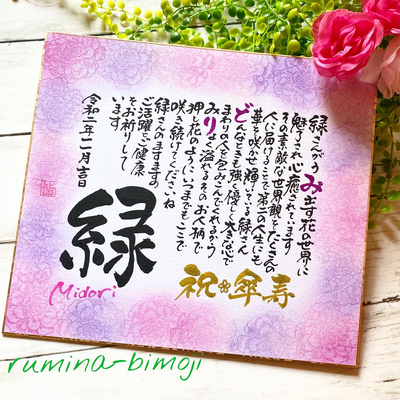 緑さんがうみ出す花の世界に
魅了され心癒されています
その素敵な世界観をたくさんの
人に届けることで第二の人生にも
華を咲かせ輝いている緑さん
どんなときも強く優しく大きな心で
まわりの人を包みこんでくれるかう
みりょく溢れるそのお人柄で
押し花のようにいつまでもここで
咲き続けてくださいね
緑さんますますの
ご活躍とご健康
をお祈りして
います
令和二年二月吉日
緑
Midori
祝傘寿
rumina-bimoji